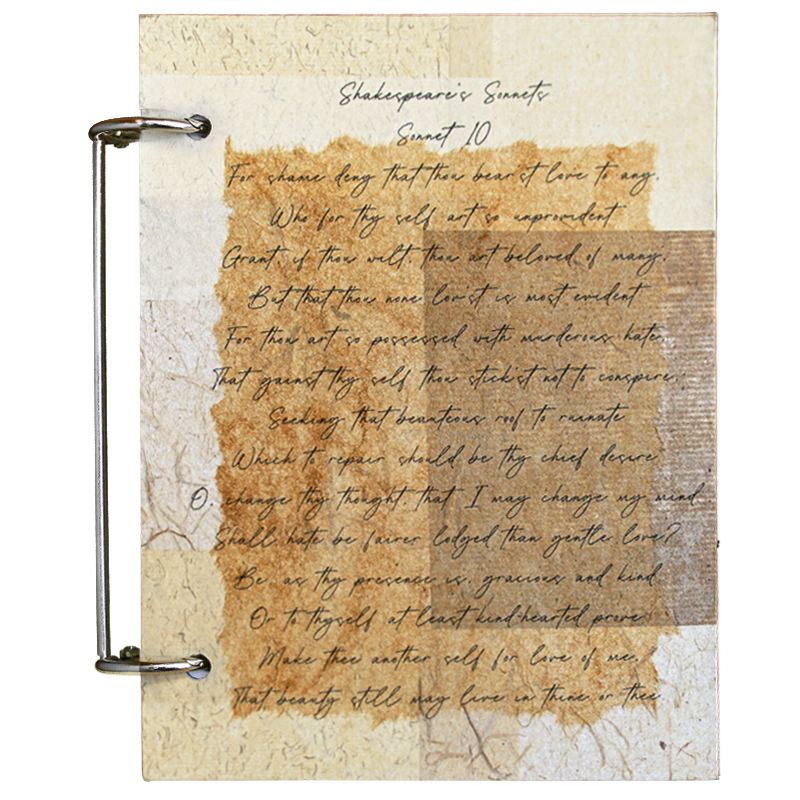 Shakespeare's Sonnets
Sonnet 10
For shame deny that thou bear'st love to any,
Who for thy self art so unprovident
Grant, if thou wilt, thou art beloved of many,
But that thou none lov'st is most evident
For thou art so possessed with murderous hate,
That gainst thy self thou stick'st not to conspire,
Seeking that beauteous roof to ruinate
Which to repair should be thy chief desire
O, change thy thought, that I may change my mind
Shall hate be fairer lodged than gentle love?
Be, as thy presence is, gracious and kind
Or to thyself at least kind-hearted prove
Make thee another self for love of me,
That beauty still may live in thine or thee